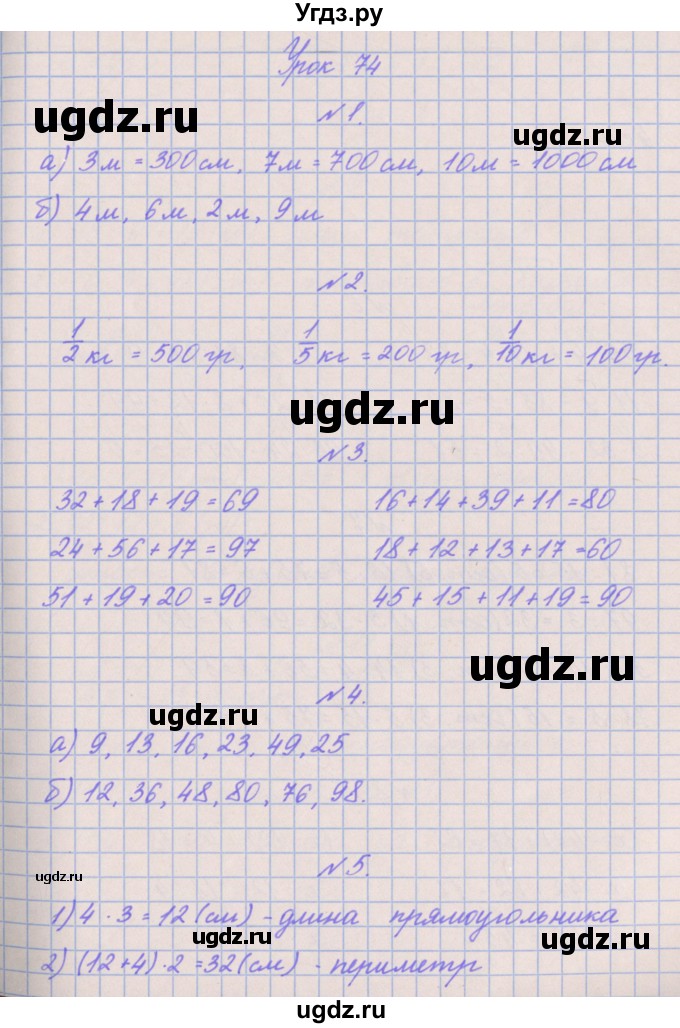 Угдз.ру
Урок 74
№1.
ugdz.ru
ugdz.ru
а) 3м = 300см, 7м = 700см, 10м = 1000см
б) 4м, 6м, 2м, 9м
№2.
1/2 кг = 500гр, 1/5 кг = 200гр, 1/10 кг = 100гр.
ugdz.ru
№3.
32+18+19=69 16+14+39+11=80
24+56+17=97 18+12+13+17=60
51+19+20=90 45+15+11+19=90
ugdz.ru
№4.
ugdz.ru
а) 9, 13, 16, 23, 49, 25
б) 12, 36, 48, 80, 76, 98.
№5.
ugdz.ru
1) 4 · 3 = 12 (см) - длина прямоугольника
ugdz.ru
ugdz.ru
2) (12+4) · 2 = 32 (см) - периметр
ugdz.ru